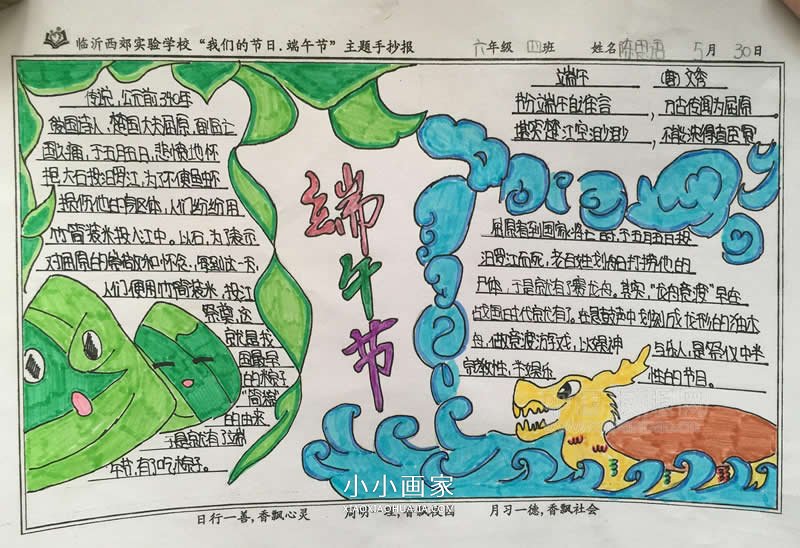 临沂西郊实验学校“我们的节日.端午节”主题手抄报 六年级 四班 姓名 陈思语 5月30日
传说,公元前340年
国大夫屈原
于五月五日,悲愤地怀
抱大石投汨罗江,为了不使鱼虾
损伤他的身体,人们纷纷用
竹筒装米投入江中。以后,为了表示
对屈原的 和怀念,每到这一天,
人们便用竹筒装米,投江
祭奠,这
就是我
国最早
的粽子
“筒粽”
的由来
于是就有了端
午节,有了吃粽子。
端午节
端午
(唐)文秀
节分端午自谁言,万古传闻为屈原
堪笑楚江空渺渺,不能洗得直臣冤
屈原看到国家 亡时,于五月五日投
汨罗江而死,老百姓划船打捞他的
尸体,于是就有了赛龙舟。其实,“龙舟竞渡”早在
战国时代就有了。在急鼓声中划刻成龙形的独木
舟,做竞渡游戏,以娱神与乐人,是祭仪中半
宗教性,半娱乐性的节目。
小小画家
XIAOXIAOHUAJIA.COM
日行一善,香飘心灵 周明一理,香飘校园 月习一德,香飘社会